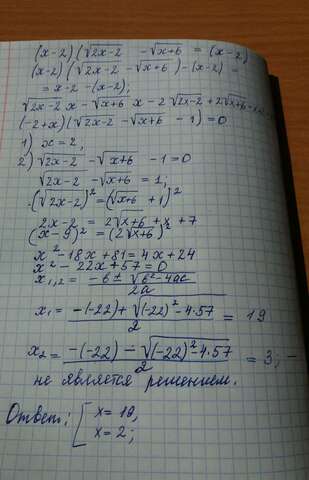 (x-2)(√2x-2 - √x+6 = (x-2)
(x-2)(√2x-2 - √x+6) - (x-2) -
= x-2 - (x-2);
√2x-2 x - √x+6 x - 2√2x-2 + 2√x+6
(-2+x)(√2x-2 - √x+6 - 1) = 0
1) x = 2,
2) √2x-2 - √x+6 - 1 = 0
√2x-2 - √x+6 = 1;
(√2x-2)² = (√x+6 + 1)²
2x-2 = 2√x+6 + x + 7
(x-9)² = (2√x+6)²
x² - 18x + 81 = 4x + 24
x² - 22x + 57 = 0
x₁,₂ = -b ± √b²-4ac / 2a
x₁ = -(-22) + √(-22)² - 4·57 / 2 = 19
x₂ = -(-22) - √(-22)² - 4·57 / 2 = 3, -
не является решением.
Ответ: [ x = 19,
x = 2;